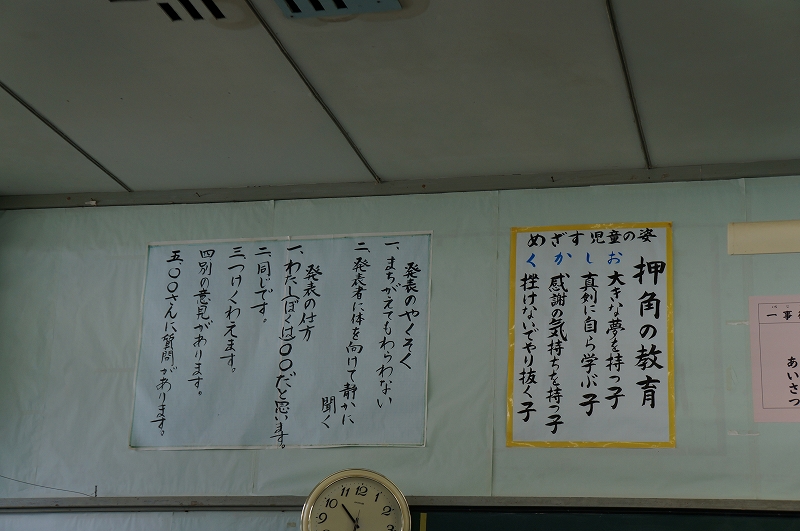 発表のやくそく
一、まちがえてもわらわない
二、発表者に体を向けて静かに
聞く
発表の仕方
一、わたし(ぼく)は〇〇だと思います。
二、同じです。
三、つけくわえます。
四、別の意見があります。
五、〇〇さんに質問があります。
押角の教育
めざす児童の姿
お 大きな夢を持つ子
し 真剣に自ら学ぶ子
か 感謝の気持ちを持つ子
く 挫けないでやり抜く子
一事
あいさつ
12
11
10
9
8
1
2
3
4